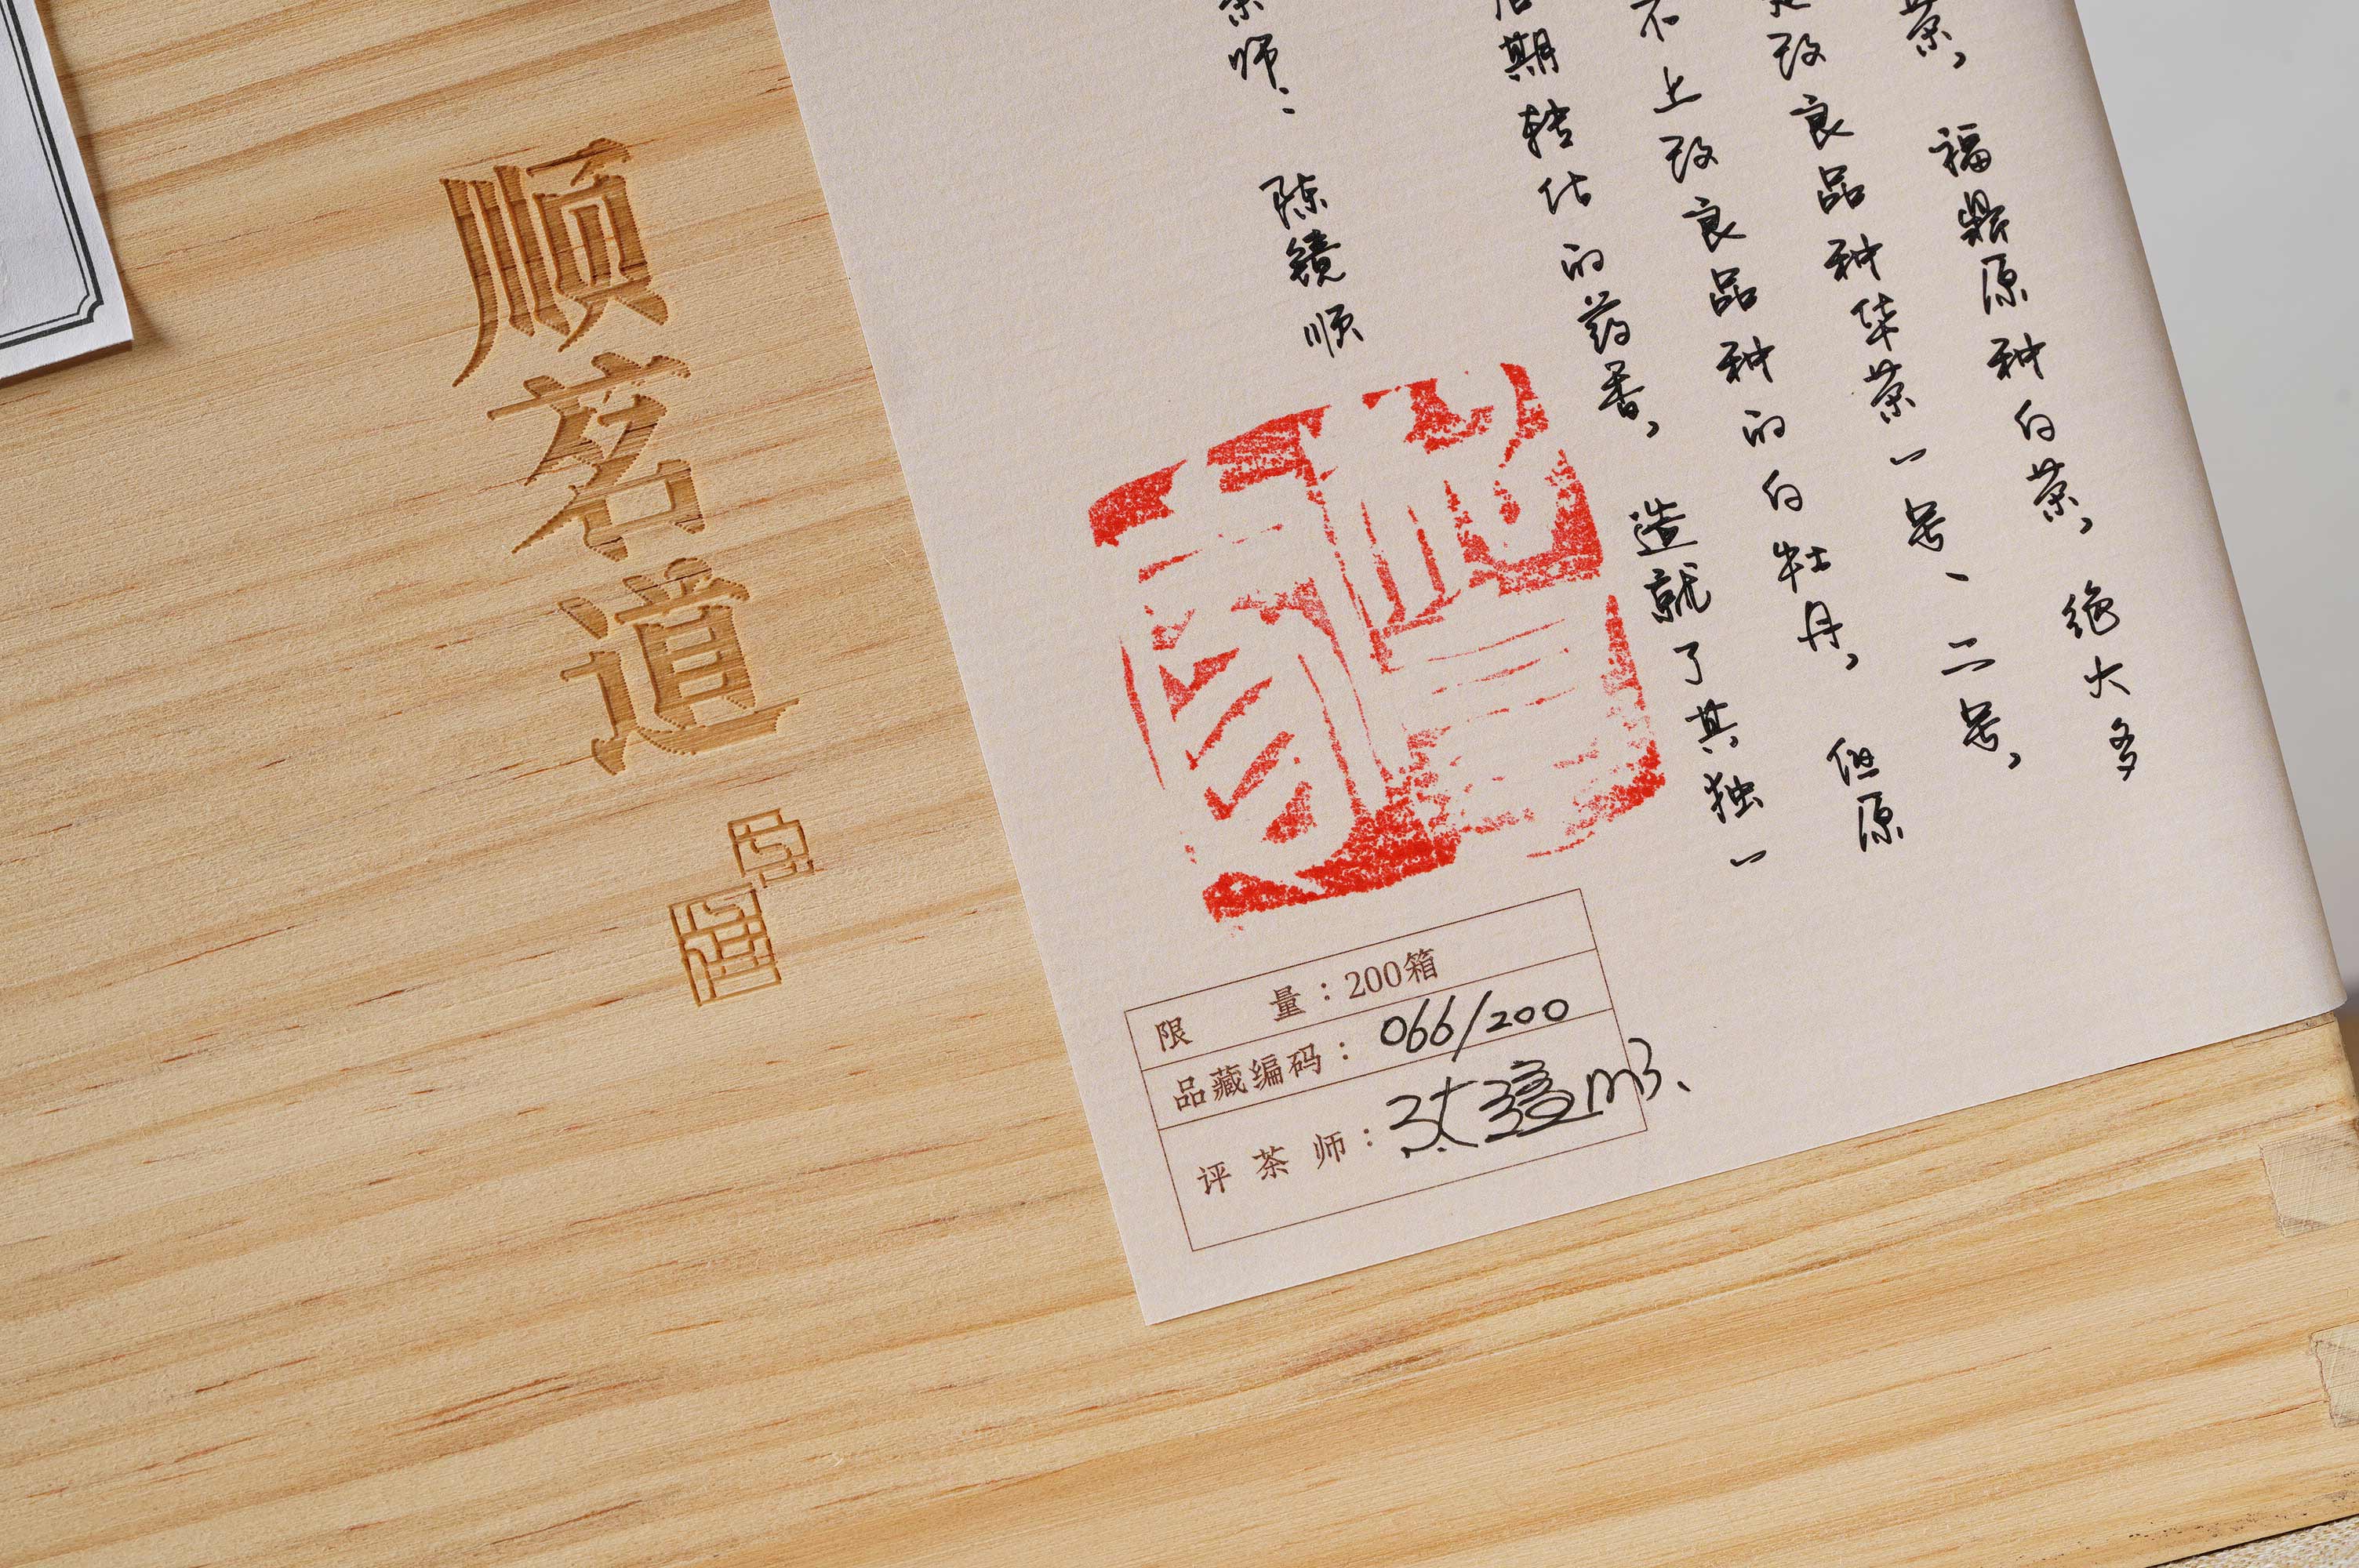 顺茗道
茶，福鼎原种白茶，绝大多
改良品种华茶一号、二号，
不上改良品种的白牡丹，但原
后期转化的药香，造就了其独一
茶师：陈镜顺
限量：200箱
品藏编码：066/200
评茶师：